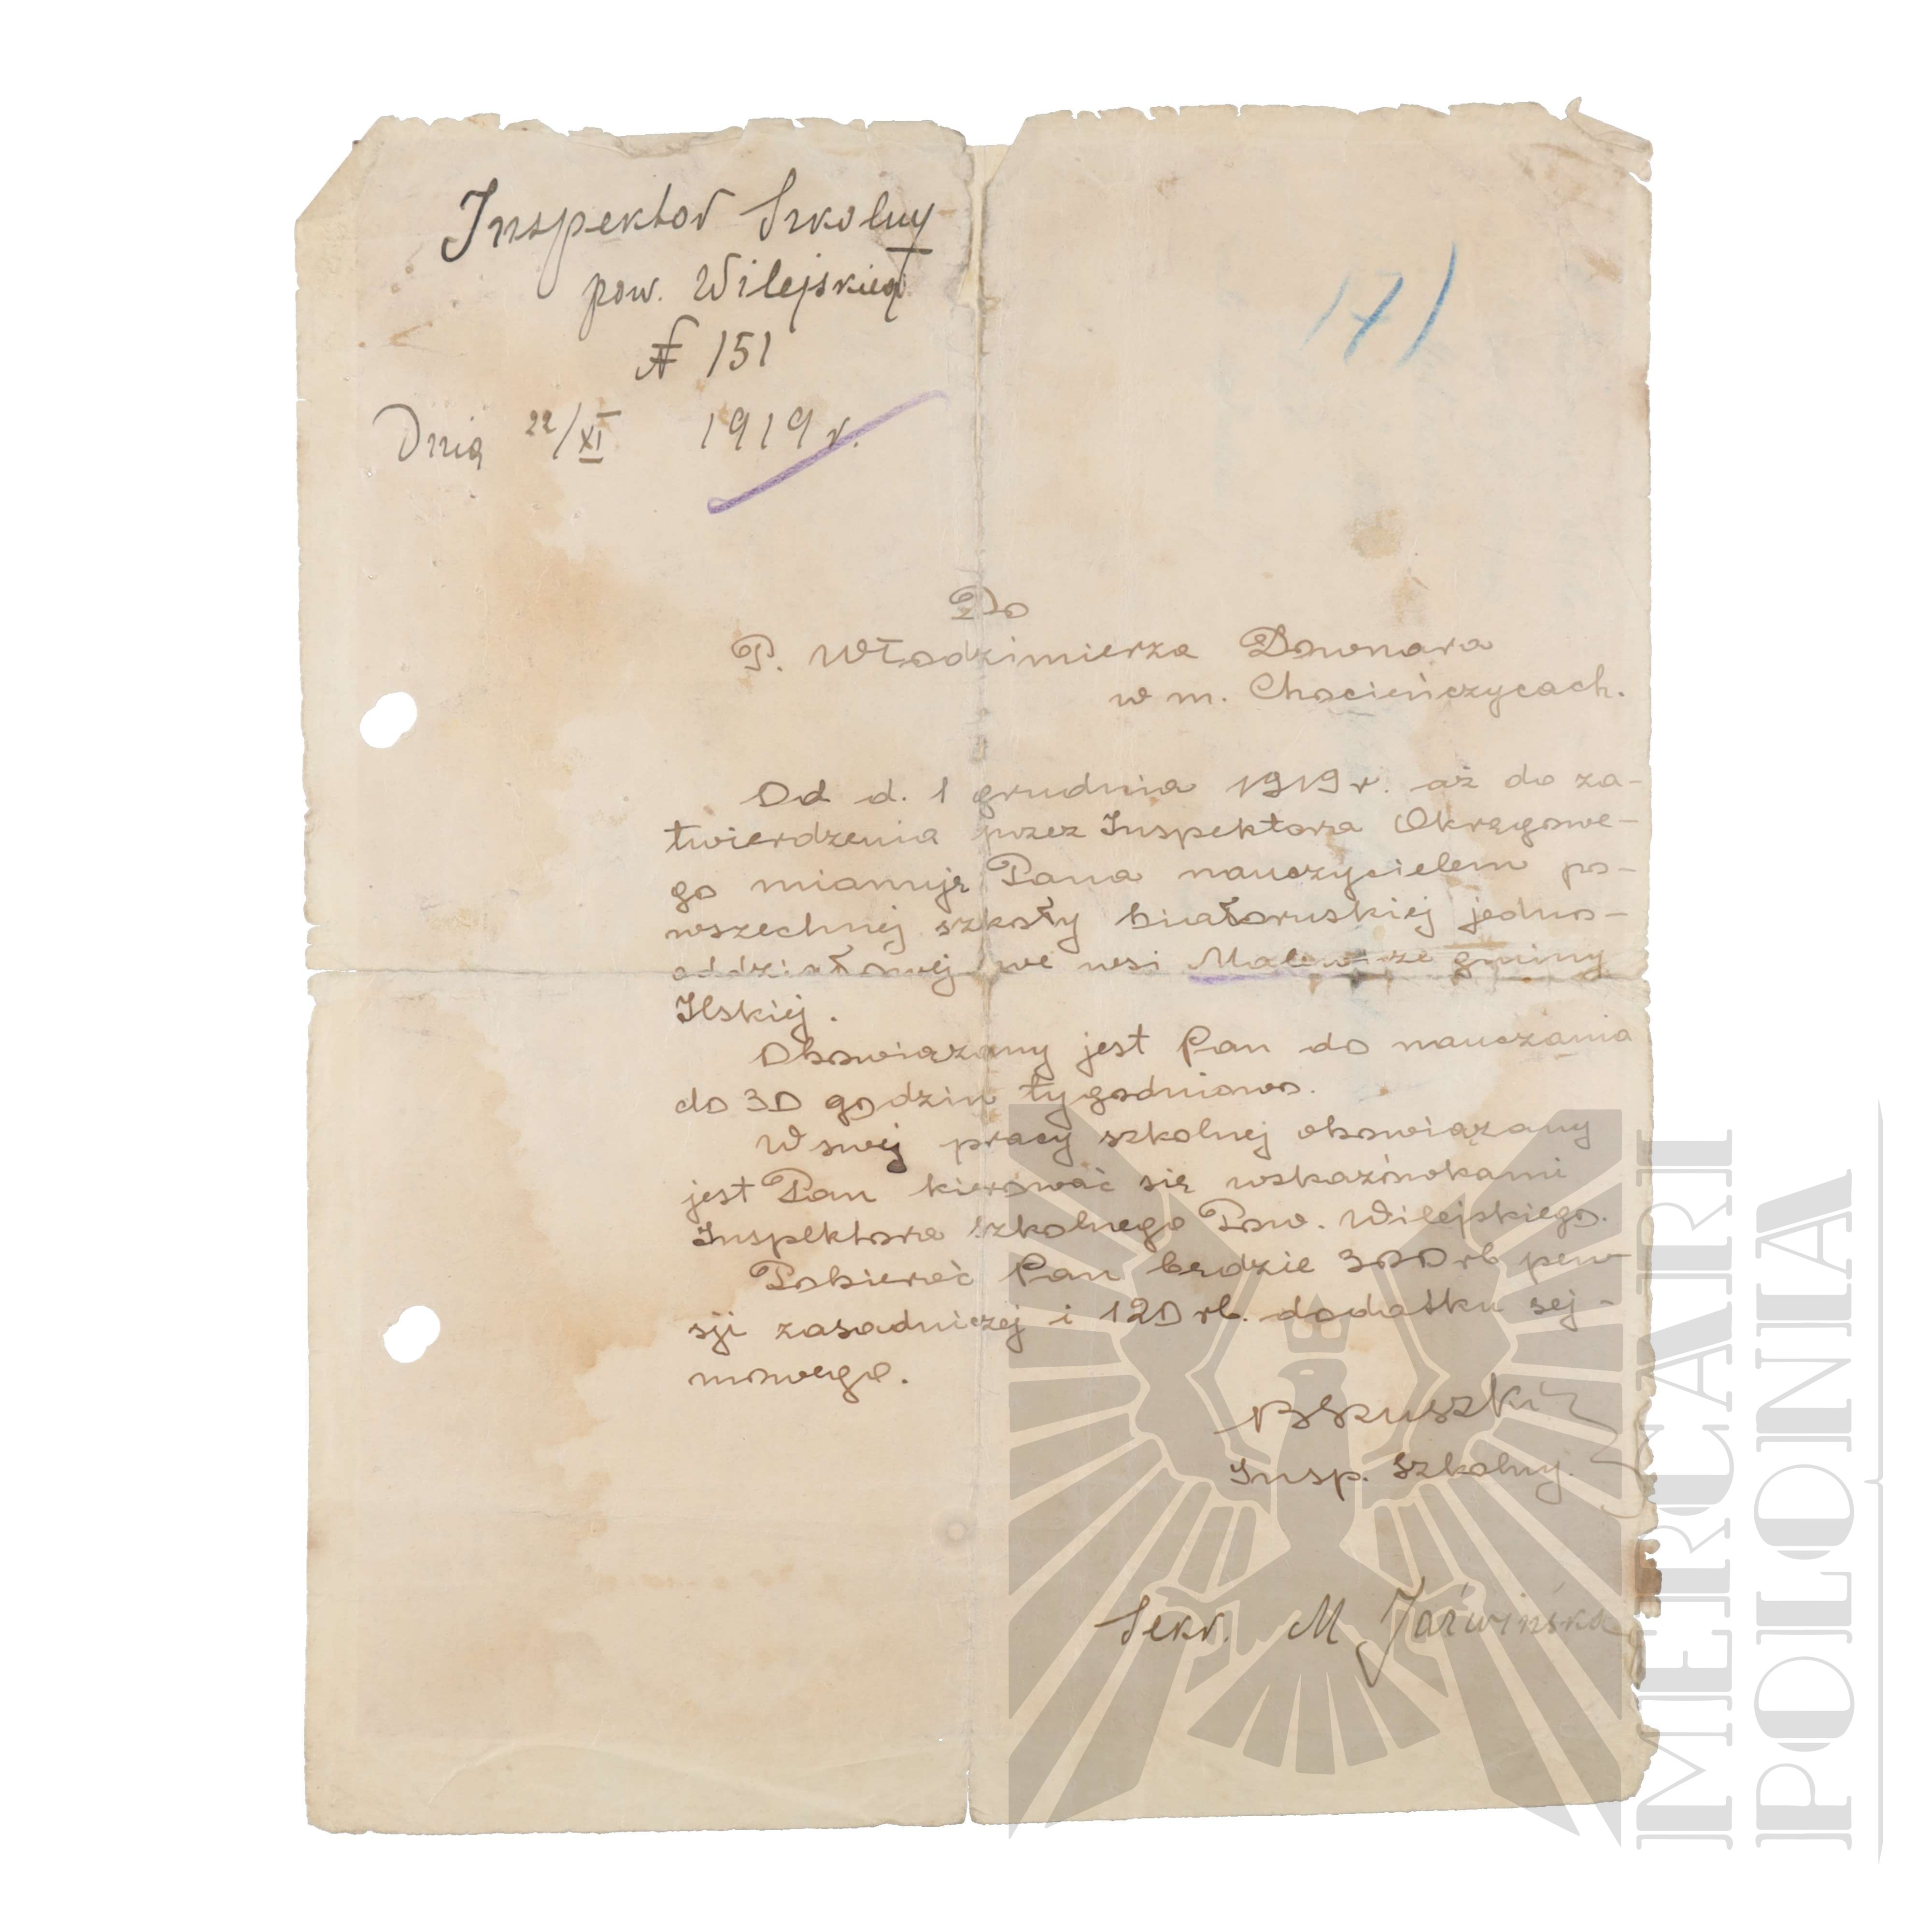 Inspektor Szkolny
pow. Wilejskiego
№ 151
Dnia 22/XI 1919 r.
17)
Do
P. Włodzimierza Downara
w m. Chocieńczycach.
Od d. 1 grudnia 1919 r. aż do za-
twierdzenia przez Inspektora Okręgowe-
go mianuję Pana nauczycielem po-
wszechnej szkoły białoruskiej jedno-
oddziałowej we wsi Malewicze gminy
Ilskiej.
Obowiązany jest Pan do nauczania
do 30 godzin tygodniowo.
W swej pracy szkolnej obowiązany
jest Pan kierować się wskazówkami
Inspektora szkolnego Pow. Wilejskiego.
Pobierać Pan będzie 300 rb pen
sji zasadniczej i 120 rb. dodatku sej-
mowego.
Insp. Szkolny.
Sekr. M Jaźwińska
MERCARI
POLONIA